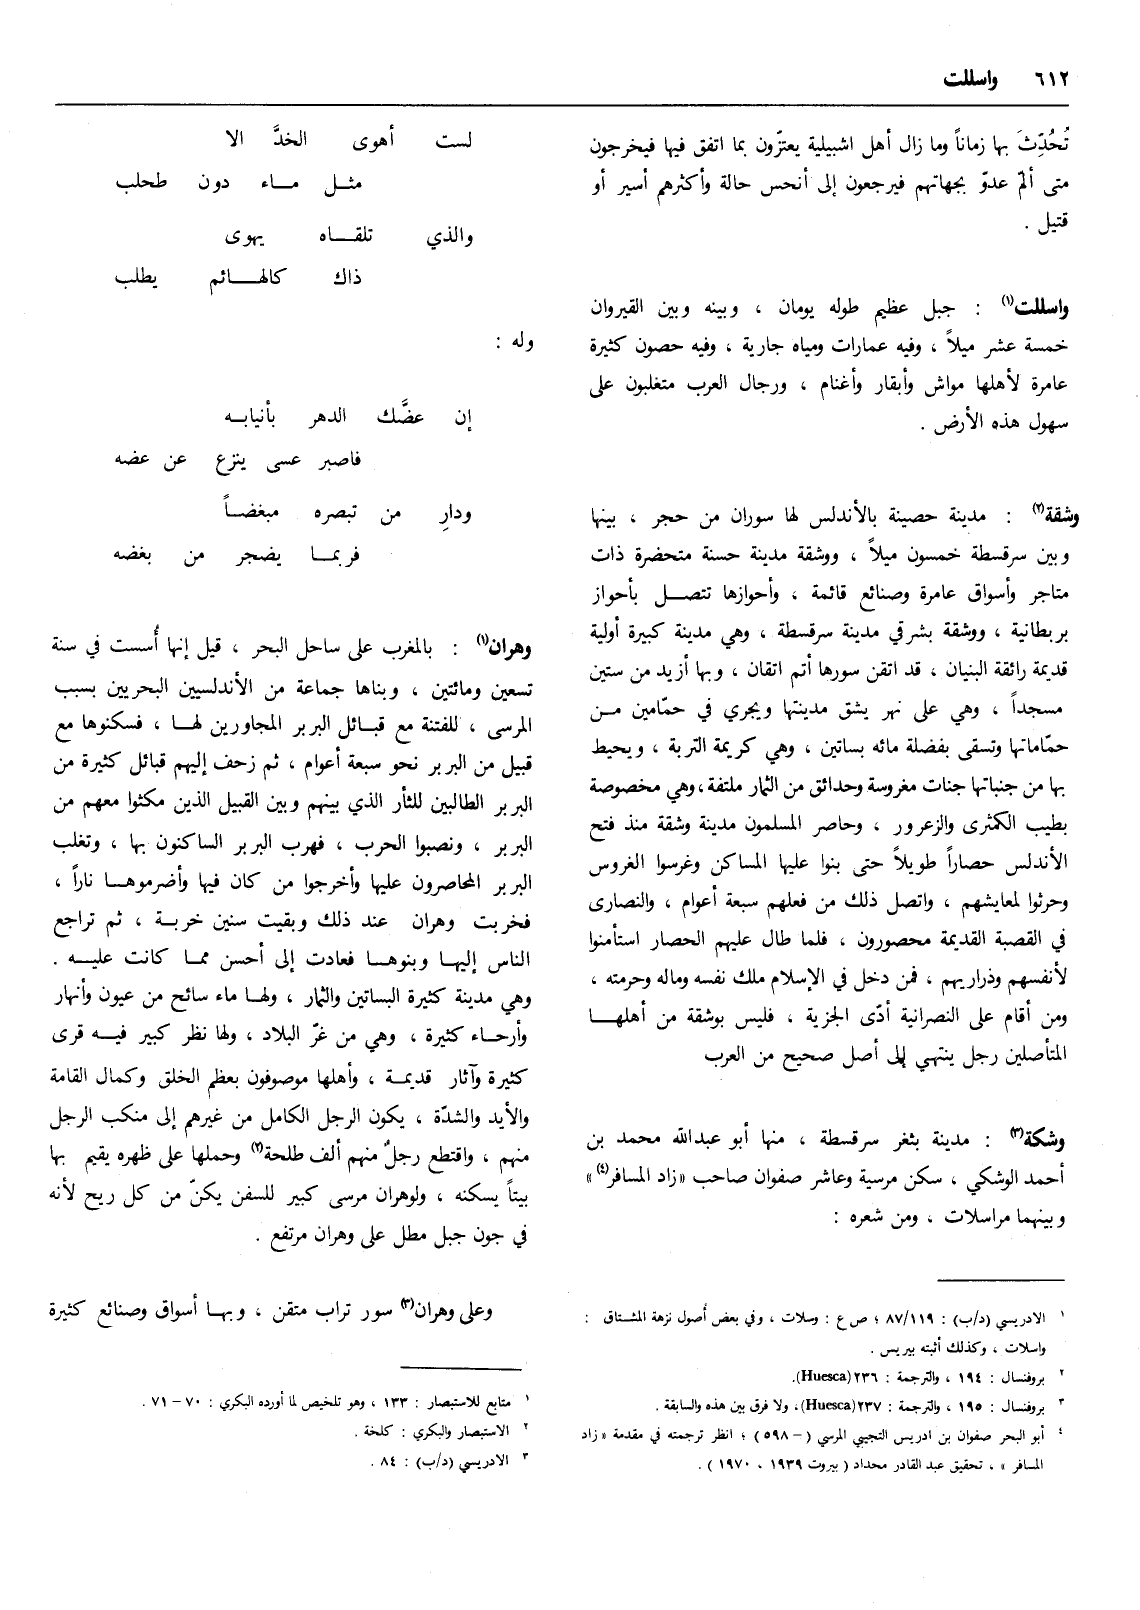 ٦١٢ واسللت
تُحُدِّثَ بها زماناً وما زال أهل اشبيلية يعتزّون بما اتفق فيها فيخرجون
متى ألمّ عدوّ بجهاتهم فيرجعون إلى أنحس حالة وأكثرهم أسير أو
قتيل .
واسللت(١) : جبل عظيم طوله يومان ، وبينه وبين القيروان
خمسة عشر ميلاً ، وفيه عمارات ومياه جارية ، وفيه حصون كثيرة
عامرة لأهلها مواش وأبقار وأغنام ، ورجال العرب متغلبون على
سهول هذه الأرض .
وشقة(٢) : مدينة حصينة بالأندلس لها سوران من حجر ، بينها
وبين سرقسطة خمسون ميلاً ، ووشقة مدينة حسنة متحضرة ذات
متاجر وأسواق عامرة وصنائع قائمة ، وأحوازها تتصل بأحواز
بربطانية ، ووشقة بشرقي مدينة سرقسطة ، وهي مدينة كبيرة أولية
قديمة رائقة البنيان ، قد اتقن سورها أتم اتقان ، وبها أزيد من ستين
مسجداً ، وهي على نهر يشق مدينتها ويجري في حمّامين من
حمّاماتها وتسقى بفضلة مائه بساتين ، وهي كريمة التربة ، ويحيط
بها من جنباتها جنات مغروسة وحدائق من الثمار ملتفة ، وهي مخصوصة
بطيب الكمثرى والزعرور ، وحاصر المسلمون مدينة وشقة منذ فتح
الأندلس حصاراً طويلاً حتى بنوا عليها المساكن وغرسوا الغروس
وحرثوا لمعايشهم ، واتصل ذلك من فعلهم سبعة أعوام ، والنصارى
في القصبة القديمة محصورون ، فلما طال عليهم الحصار استأمنوا
لأنفسهم وذراريهم ، فمن دخل في الإسلام ملك نفسه وماله وحرمته ،
ومن أقام على النصرانية أدّى الجزية ، فليس بوشقة من أهلها
المتأصلين رجل ينتهي إلى أصل صحيح من العرب
وشكة(٣) : مدينة بثغر سرقسطة ، منها أبو عبدالله محمد بن
أحمد الوشكي ، سكن مرسية وعاشر صفوان صاحب « زاد المسافر(٤) »
وبينهما مراسلات ، ومن شعره :
١ الادريسي (د/ب) : ٨٧/١١٩ ؛ ص ع : وسلات ، وفي بعض أصول نزهة المشتاق :
واسلات ، وكذلك أثبته بيريس .
٢ بروفنسال : ١٩٤ ، والترجمة : ٢٣٦ (Huesca).
٣ بروفنسال : ١٩٥ ، والترجمة : ٢٣٧ (Huesca)، ولا فرق بين هذه والسابقة .
٤ أبو البحر صفوان بن ادريس التجيبي المرسي ( – ٥٩٨ ) ؛ انظر ترجمته في مقدمة « زاد
المسافر » ، تحقيق عبد القادر محداد ( بيروت ١٩٣٩ ، ١٩٧٠ ) .
لست أهوى الخدَّ الا
مثل ماء دون طحلب
والذي تلقاه يهوى
ذاك كالهائم يطلب
وله :
إن عضَّك الدهر بأنيابه
فاصبر عسى ينزع عن عضه
ودارِ من تبصره مبغضاً
فربما يضجر من بغضه
وهران(١) : بالمغرب على ساحل البحر ، قيل إنها أُسست في سنة
تسعين ومائتين ، وبناها جماعة من الأندلسيين البحريين بسبب
المرسى ، للفتنة مع قبائل البربر المجاورين لها ، فسكنوها مع
قبيل من البربر نحو سبعة أعوام ، ثم زحف إليهم قبائل كثيرة من
البربر الطالبين للثأر الذي بينهم وبين القبيل الذين مكثوا معهم من
البربر ، ونصبوا الحرب ، فهرب البربر الساكنون بها ، وتغلب
البربر المحاصرون عليها وأخرجوا من كان فيها وأضرموها ناراً ،
فخربت وهران عند ذلك وبقيت سنين خربة ، ثم تراجع
الناس إليها وبنوها فعادت إلى أحسن مما كانت عليه .
وهي مدينة كثيرة البساتين والثمار ، ولها ماء سائح من عيون وأنهار
وأرحاء كثيرة ، وهي من غرّ البلاد ، ولها نظر كبير فيه قرى
كثيرة وآثار قديمة ، وأهلها موصوفون بعظم الخلق وكمال القامة
والأيد والشدّة ، يكون الرجل الكامل من غيرهم إلى منكب الرجل
منهم ، واقتطع رجلٌ منهم ألف طلحة(٢) وحملها على ظهره يقيم بها
بيتاً يسكنه ، ولوهران مرسى كبير للسفن يكنّ من كل ريح لأنه
في جون جبل مطل على وهران مرتفع .
وعلى وهران(٣) سور تراب متقن ، وبها أسواق وصنائع كثيرة
١ متابع للاستبصار : ١٣٣ ، وهو تلخيص لما أورده البكري : ٧٠ – ٧١ .
٢ الاستبصار والبكري : كلخة .
٣ الادريسي (د/ب) : ٨٤ .